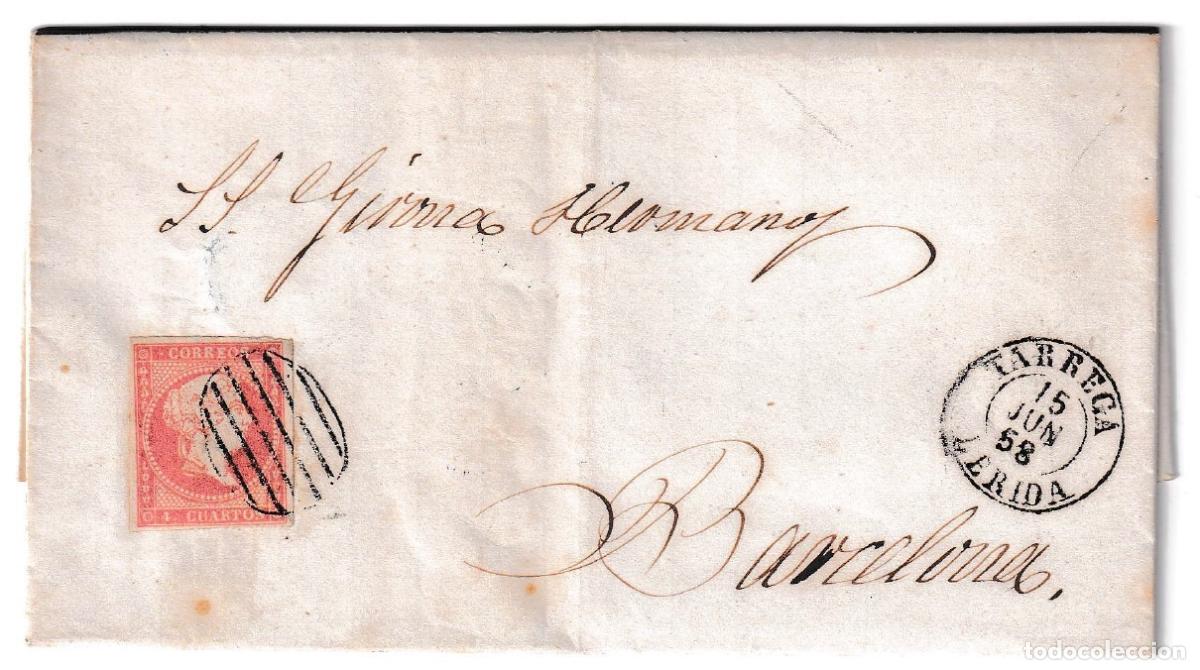 SS. Girona Hermanos
CORREOS
4 CUARTOS.
TARREGA
15
JUN
58
LERIDA
Barcelona,
todocoleccion